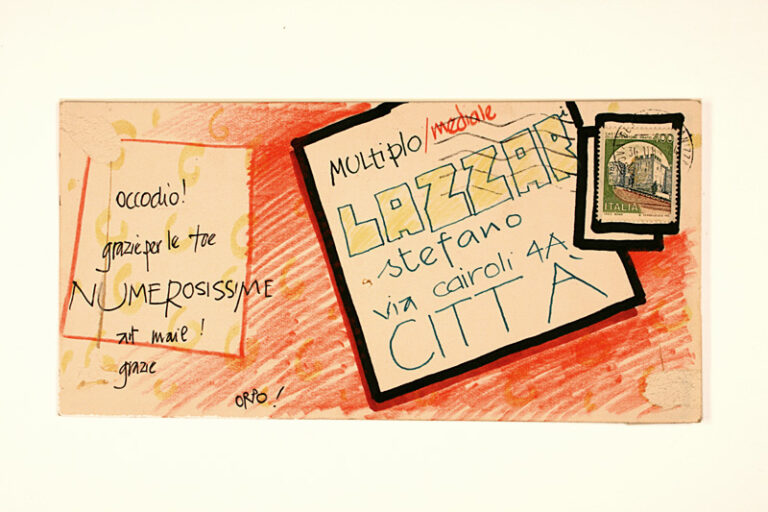 occodio!
grazie per le tue
NUMEROSISSIME
art maie!
grazie
ORPO!
MULTIPLO/mediale
LAZZARI
stefano
via cairoli 4A
CITTÀ
400
ITALIA